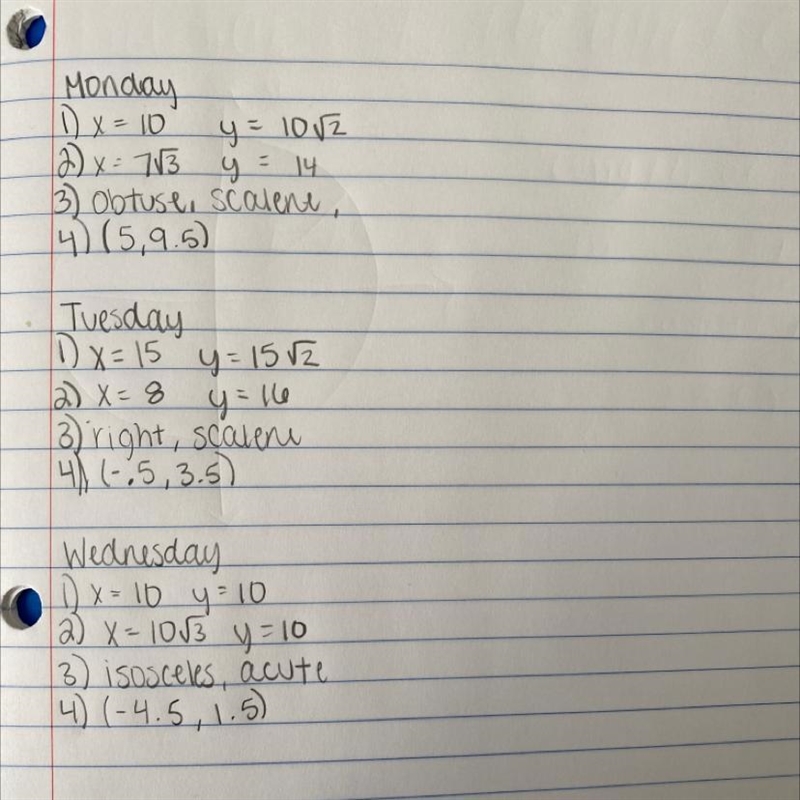 Monday
1) x = 10 y = 10√2
2) x = 7√3 y = 14
3) obtuse, scalene,
4) (5,9.5)
Tuesday
1) x = 15 y = 15√2
2) x = 8 y = 16
3) right, scalene
4) (-.5, 3.5)
Wednesday
1) x = 10 y = 10
2) x = 10√3 y = 10
3) isosceles, acute
4) (-4.5, 1.5)